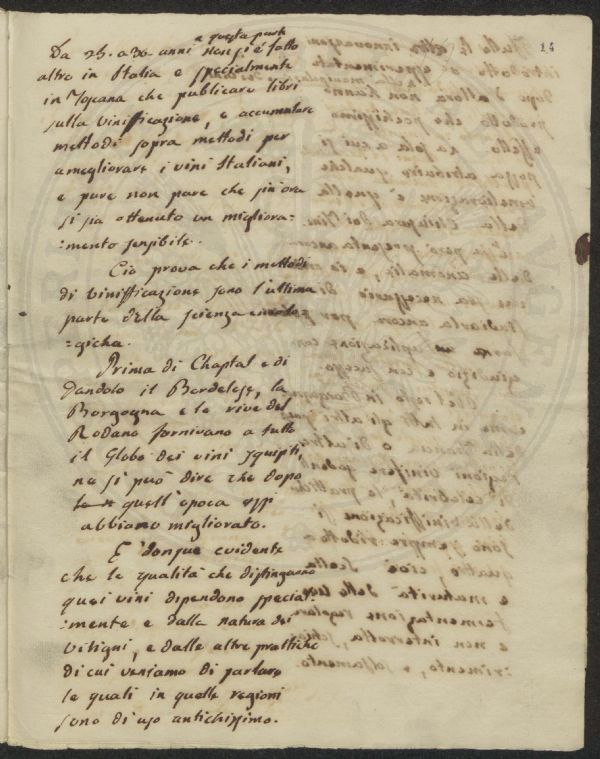 24
a questa parte
Da 25. a 30 anni non si è fatto
altro in Italia e specialmente
in Toscana che publicare libri
sulla vinificazione, e accumulare
mettodi sopra mettodi per
amegliorare i vini Italiani,
e pure non pare che sin'ora
si sia ottenuto un migliora=
=mento sensibile.
Ciò prova che i mettodi
di vinificazione sono l'ultima
parte della scienza
=gicha.
Prima di Chaptal e di
Dandolo il Bordelese, la
Borgogna e le rive del
Rodano fornivano a tutto
il Globo dei vini squisiti,
ne si può dire che dopo
quell'epoca essi
abbiano migliorato.
E' donque evidente
che le qualità che distinguono
quei vini dipendono special=
=mente e dalla natura dei
vitigni, e dalle altre prattiche
di cui veniamo di parlare
le quali in quelle regioni
sono di uso antichissimo.